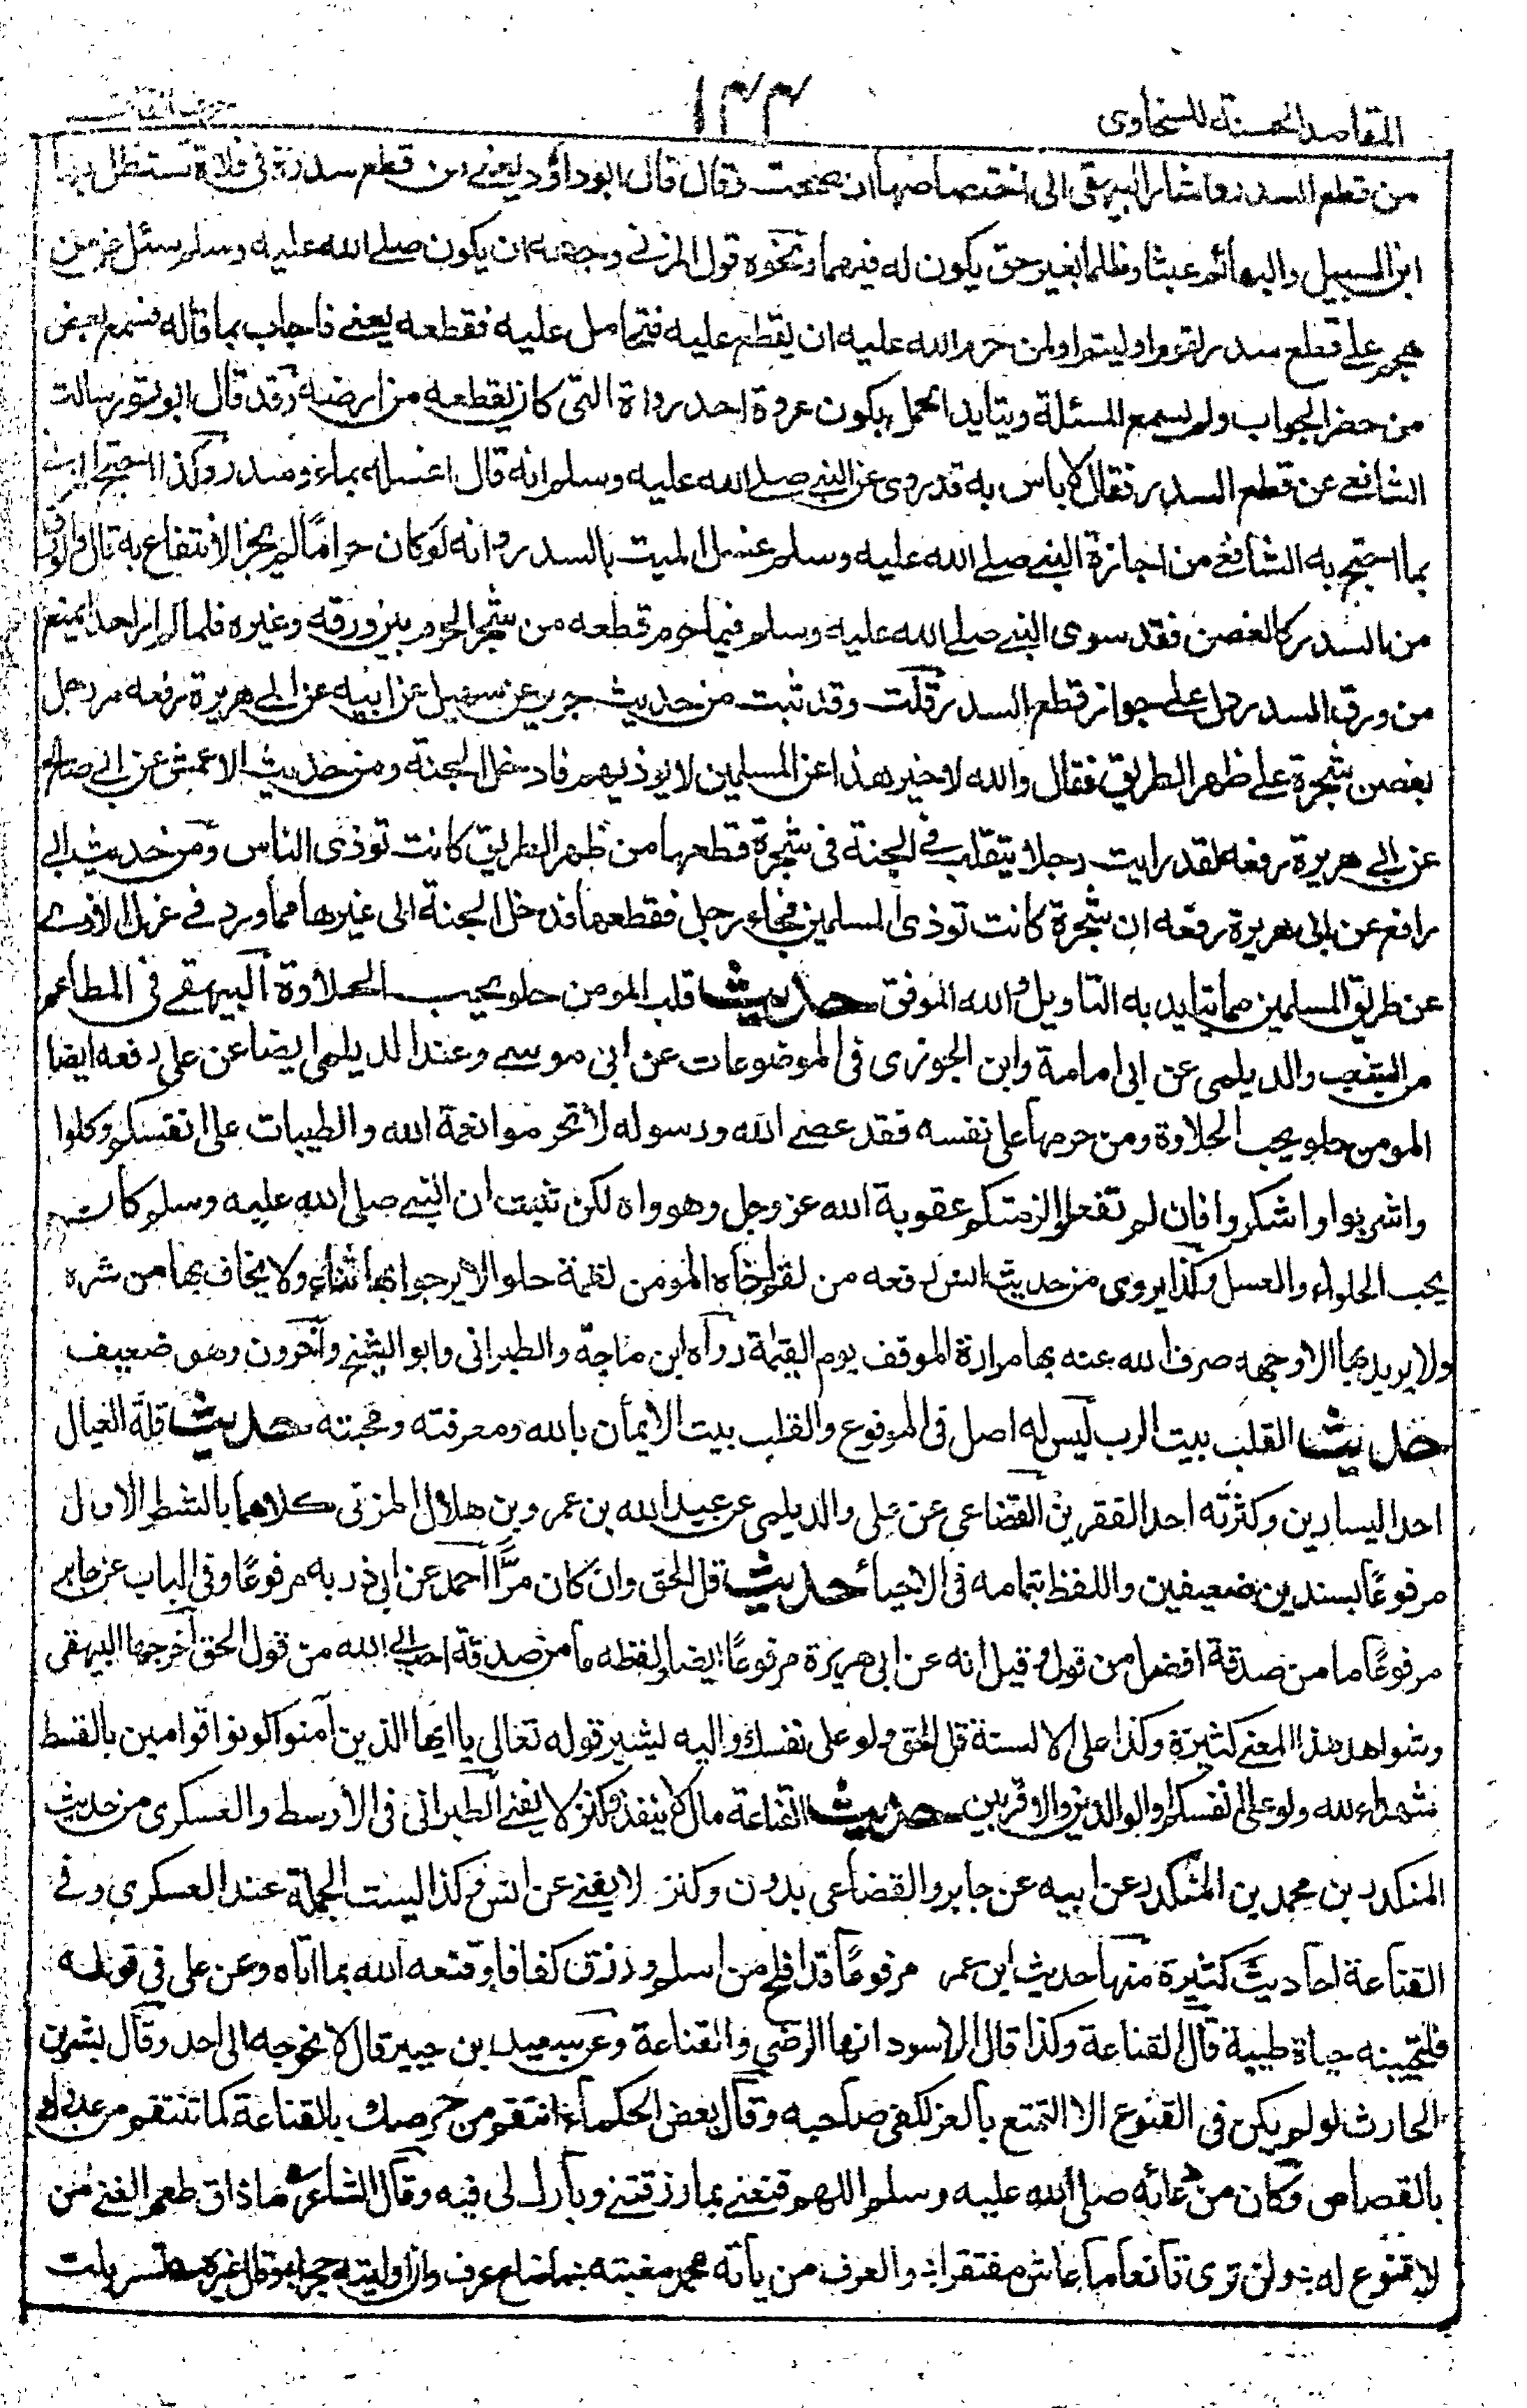 المقاصد الحسنة للسخاوى
١٤٤
حرف القاف
من قطع السدر واشار البيهقى الى اختصاصها ان صحت وقال قال ابو داؤد يعنى من قطع سدرة فى فلاة تستظل بها
ابن السبيل والبهائم عبثا وظلما بغير حق يكون له فيهما ونحوه قول المزنى وجهه ان يكون صلى الله عليه وسلم سئل عن من
هجم على قطع سدر لقوم او ليتيم او لمن حرم الله عليه ان يقطع عليه فتحامل عليه فقطعه يعنى فاجاب بما قاله فسمع بعض
من حضر الجواب ولم يسمع المسئلة ويتايد الحمل بكون عروة احد رواة النهى كان يقطعه من ارضه وقد قال ابو ثور سالت
الشافعى عن قطع السدر فقال لا باس به قد روى عن النبى صلى الله عليه وسلم انه قال اغسله بماء وسدر وكذا احتج المزنى
بما احتج به الشافعى من اجازة النبى صلى الله عليه وسلم غسل الميت بالسدر وانه لو كان حراما لم يجز الانتفاع به قال والورق
من السدر كالغصن فقد سوى النبى صلى الله عليه وسلم فيما حرم قطعه من شجر الحرم بين ورقه وغيره فلما لم ار احدا يمنع
من ورق السدر دل على جواز قطع السدر قلت وقد ثبت من حديث جرير عن سهيل عن ابيه عن ابى هريرة رفعه مر رجل
بغصن شجرة على ظهر الطريق فقال والله لاخير هذا عن المسلمين لا يوذيهم فادخل الجنة ومن حديث الاعمش عن ابى صالح
عن ابى هريرة رفعه لقد رايت رجلا يتقلب فى الجنة فى شجرة قطعها من ظهر الطريق كانت توذى الناس ومن حديث ابى
رافع عن ابى هريرة رفعه ان شجرة كانت توذى المسلمين فجاء رجل فقطعها فدخل الجنة الى غيرها مما ورد فى عزل الاذى
عن طريق المسلمين مما يتايد به التاويل والله الموفق حديث قلب المومن حلو يحب الحلاوة البيهقى فى المطاعم
من الشعب والديلمى عن ابى امامة وابن الجوزى فى الموضوعات عن ابى موسى وعند الديلمى ايضا عن على رفعه ايضا
المومن حلو يحب الحلاوة ومن حرمها على نفسه فقد عصى الله ورسوله لا تحرموا نعمة الله والطيبات على انفسكم وكلوا
واشربوا واشكروا فان لم تفعلوا لزمتكم عقوبة الله عز وجل وهو واه لكن ثبت ان النبى صلى الله عليه وسلم كان
يحب الحلواء والعسل وكذا يروى من حديث انس رفعه من لقم اخاه المومن لقمة حلوا لا يرجوا بها ثناء ولا يخاف بها من شره
ولا يريد بها الا وجهه صرف الله عنه بها مرارة الموقف يوم القيمة رواه ابن ماجة والطبرانى وابو الشيخ وآخرون وهو ضعيف
حديث القلب بيت الرب ليس له اصل فى المرفوع والقلب بيت الايمان بالله ومعرفته ومحبته حديث قلة العيال
احد اليسارين وكثرته احد الفقرين القضاعى عن على والديلمى عن عبيد الله بن عمرو بن هلال المزنى كلاهما بالشطر الاول
مرفوعًا بسندين ضعيفين واللفظ بتمامه فى الاحياء حديث قل الحق وان كان مرًّا احمد عن ابى ذر به مرفوعًا وفى الباب عن جابر
مرفوعًا ما من صدقة افضل من قول وقيل انه عن ابى هريرة مرفوعًا ايضا ولفظه ما من صدقة احب الى الله من قول الحق اخرجها البيهقى
وشواهد هذا المعنى كثيرة وكذا على الالسنة قل الحق ولو على نفسك واليه يشير قوله تعالى يا ايها الذين آمنوا كونوا قوامين بالقسط
شهداء لله ولو على انفسكم او الوالدين والاقربين حديث القناعة مال لا ينفذ وكنز لا يفنى الطبرانى فى الاوسط والعسكرى من حديث
المنكدر بن محمد بن المنكدر عن ابيه عن جابر والقضاعى بدون وكنز لا يفنى عن انس وكذا ليست الجملة عند العسكرى وفى
القناعة احاديث كثيرة منها حديث ابن عمر مرفوعًا قد افلح من اسلم ورزق كفافا وقنعه الله بما اتاه وعن على فى قوله
فلنحيينه حياة طيبة قال القناعة وكذا قال الاسود انها الرضى والقناعة وعن سعيد بن جبير قال لا نحوجه الى احد وقال بشر بن
الحارث لو لم يكن فى القنوع الا التمتع بالعز لكفى صاحبه وقال بعض الحكماء انتقم من حرصك بالقناعة كما تنتقم من عدوك
بالقصاص وكان من دعائه صلى الله عليه وسلم اللهم قنعنى بما رزقتنى وبارك لى فيه وقال الشاعر ما ذاق طعم الغنى من
لا قنوع له ولن ترى قانعا ما عاش مفتقرا والعرف من ياته يحمد مغبته ما ضاع عرف وان اوليته حجرا وقال غيره تسربلت